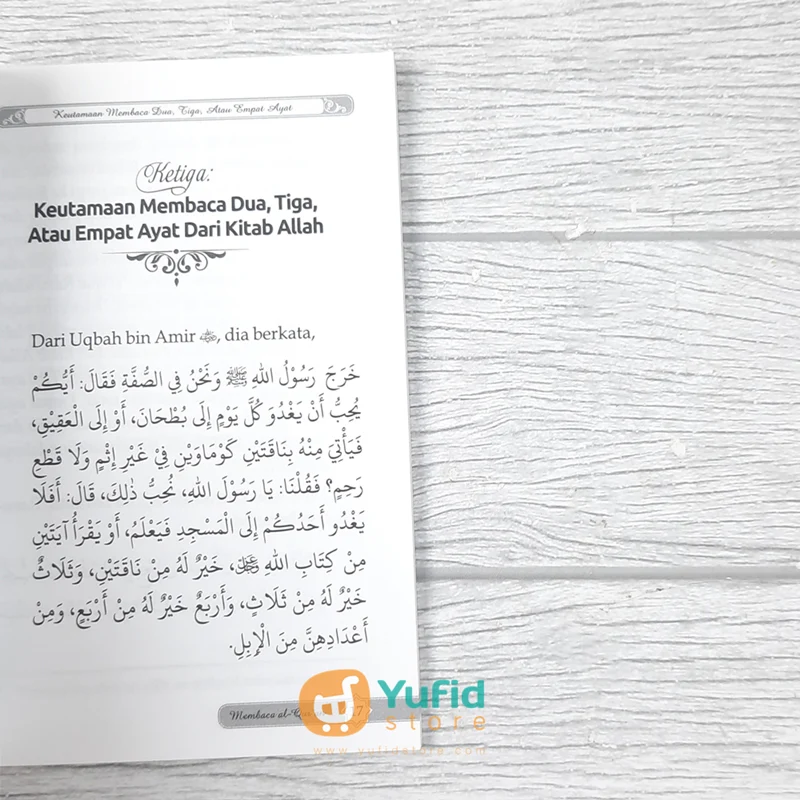 Keutamaan Membaca Dua, Tiga, Atau Empat Ayat
Ketiga:
Keutamaan Membaca Dua, Tiga,
Atau Empat Ayat Dari Kitab Allah
Dari Uqbah bin Amir ﵁, dia berkata,
خَرَجَ رَسُوْلُ اللهِ ﷺ وَنَحْنُ فِي الصُّفَّةِ فَقَالَ: أَيُّكُمْ
يُحِبُّ أَنْ يَغْدُوَ كُلَّ يَوْمٍ إِلَى بُطْحَانَ، أَوْ إِلَى الْعَقِيْقِ،
فَيَأْتِيَ مِنْهُ بِنَاقَتَيْنِ كَوْمَاوَيْنِ فِيْ غَيْرِ إِثْمٍ وَلَا قَطْعِ
رَحِمٍ؟ فَقُلْنَا: يَا رَسُوْلَ اللهِ، نُحِبُّ ذٰلِكَ، قَالَ: أَفَلَا
يَغْدُو أَحَدُكُمْ إِلَى الْمَسْجِدِ فَيَعْلَمُ، أَوْ يَقْرَأُ آيَتَيْنِ
مِنْ كِتَابِ اللهِ ﷻ، خَيْرٌ لَهُ مِنْ نَاقَتَيْنِ، وَثَلَاثٌ
خَيْرٌ لَهُ مِنْ ثَلَاثٍ، وَأَرْبَعٌ خَيْرٌ لَهُ مِنْ أَرْبَعٍ، وَمِنْ
أَعْدَادِهِنَّ مِنَ الْإِبِلِ.
Membaca al-Qur
Yufid
store
www.yufidstore.com